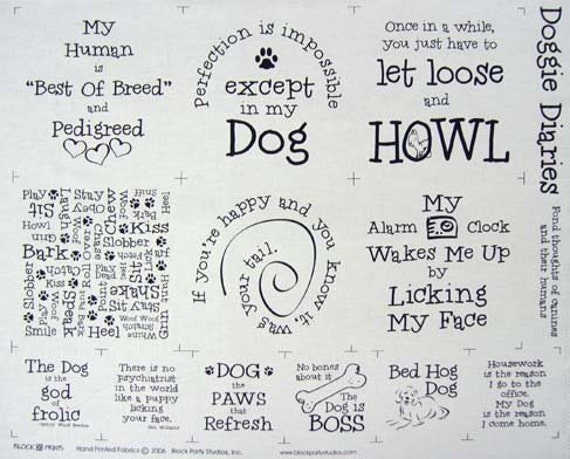 My
Human
is
"Best Of Breed"
and
Pedigreed
Perfection is impossible
except
in my
Dog
Once in a while,
you just have to
let loose
and
HOWL
Doggie Diaries
Fond thoughts of canines
and their humans
If you're happy and you know it, wag your tail.
My
Alarm Clock
Wakes Me Up
by
Licking
My Face
Play
Sit
Howl
Grin
Bark
Slobber
Smile
Laugh
Woof
Speak
Stay
Obey
Kiss
Slobber
Chew
Heel
Sniff
Chase
Roll Over
Fetch
Sit Stay
Shake
Heel
Hunt
Grunt
The Dog
is the
god
of
frolic
There is no
psychiatrist
in the world
like a puppy
licking
your face.
Ben Williams
DOG
the
PAWS
that
Refresh
No bones
about it
The
Dog is
BOSS
Bed Hog
Dog
Housework
is the reason
I go to the
office.
My Dog
is the reason
I come home.
BLOCK PARTY Hand Printed Fabrics © 2006 Block Party Studios, Inc. www.blockpartystudios.com